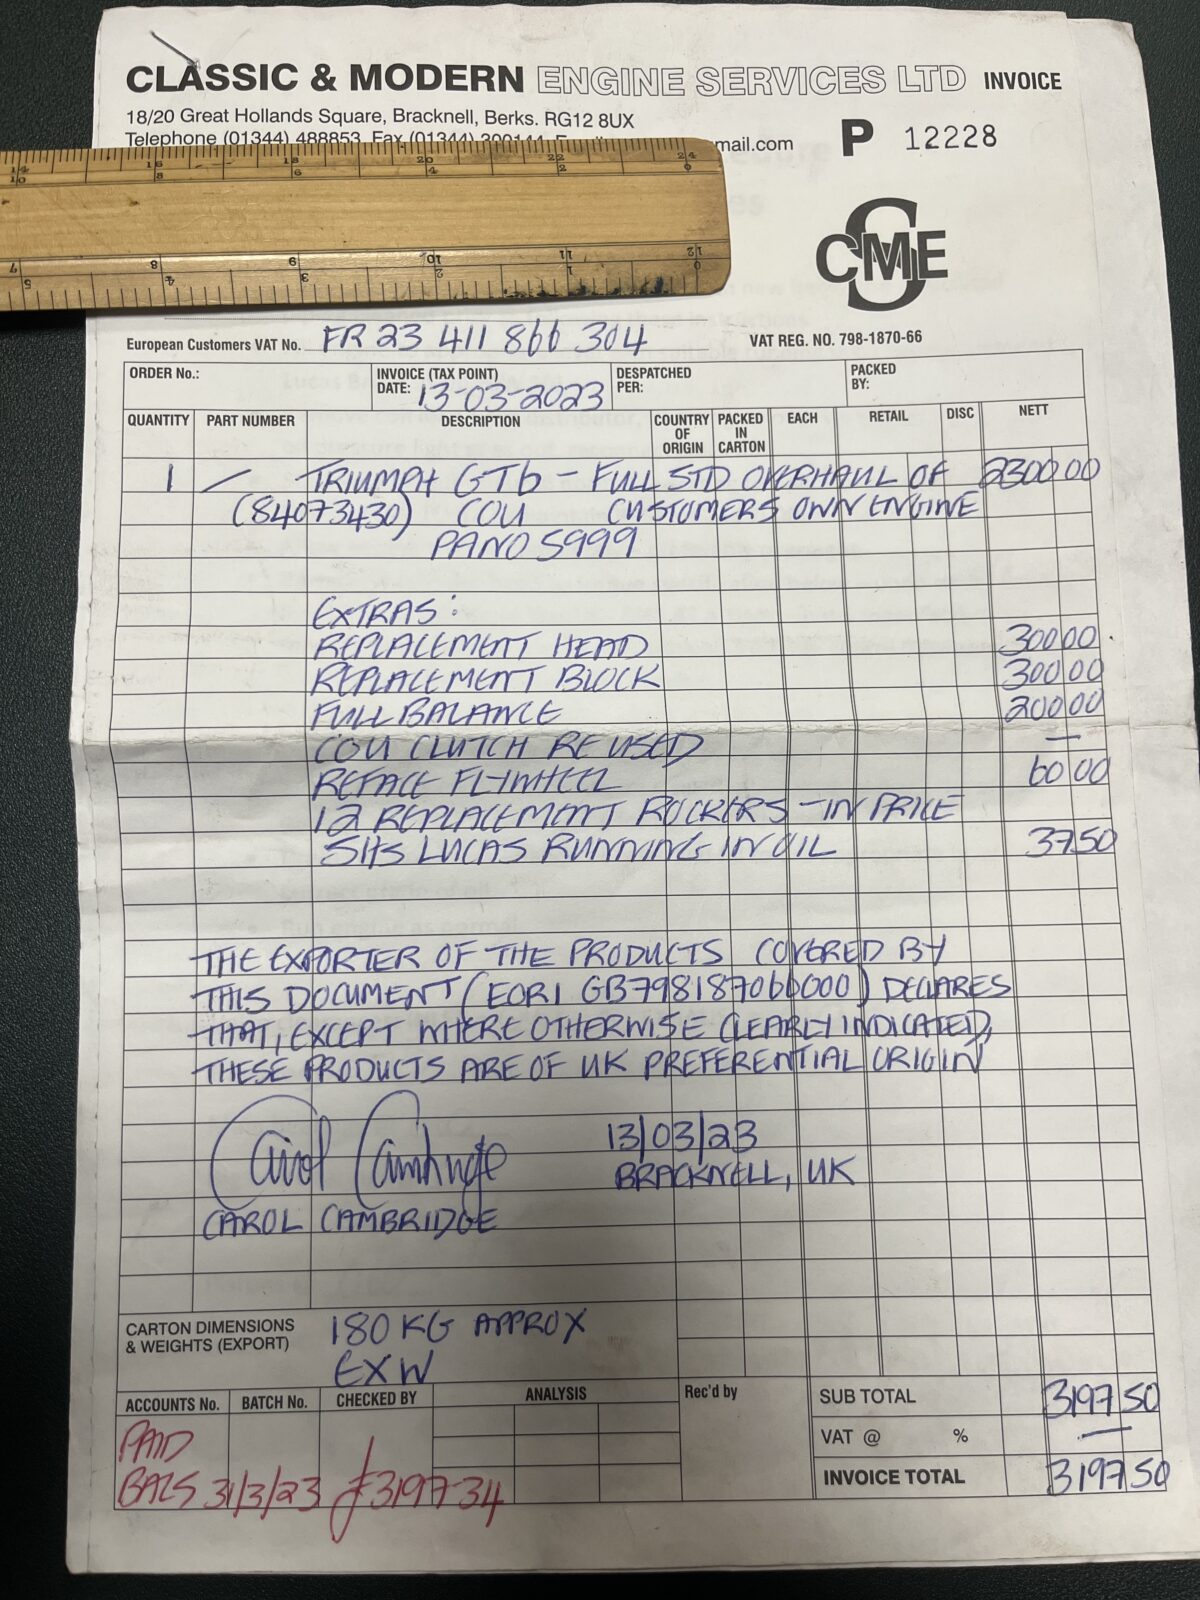 CLASSIC & MODERN ENGINE SERVICES LTD INVOICE
18/20 Great Hollands Square, Bracknell, Berks. RG12 8UX
Telephone (01344) 488853 Fax (01344) mail.com
P 12228
14 16 18 20 22 24
10 8 6 4 2 0
7 8 9 10 11 12
5 4 3 2 1 0
CMES
European Customers VAT No. FR 23 411 866 304
VAT REG. NO. 798-1870-66
ORDER No.: INVOICE (TAX POINT) DATE: 13-03-2023 DESPATCHED PER: PACKED BY:
QUANTITY PART NUMBER DESCRIPTION COUNTRY OF ORIGIN PACKED IN CARTON EACH RETAIL DISC NETT
1 — TRIUMPH GT6 - FULL STD OVERHAUL OF 2300.00
(84073430) COU CUSTOMERS OWN ENGINE
PANO 5999
EXTRAS:
REPLACEMENT HEAD 300.00
REPLACEMENT BLOCK 300.00
FULL BALANCE 200.00
COU CLUTCH RE USED —
REFACE FLYWHEEL 60.00
12 REPLACEMENT ROCKERS - IN PRICE
LUCAS RUNNING IN OIL 37.50
THE EXPORTER OF THE PRODUCTS COVERED BY
THIS DOCUMENT (EORI GB798187066000) DECLARES
THAT, EXCEPT WHERE OTHERWISE CLEARLY INDICATED,
THESE PRODUCTS ARE OF UK PREFERENTIAL ORIGIN
Carol Cambridge 13/03/23
BRACKNELL, UK
CAROL CAMBRIDGE
CARTON DIMENSIONS & WEIGHTS (EXPORT) 180 KG APPROX
EXW
ACCOUNTS No. BATCH No. CHECKED BY ANALYSIS Rec'd by SUB TOTAL 3197.50
VAT @ % —
INVOICE TOTAL 3197.50
PAID
BACS 31/3/23 £3197-34